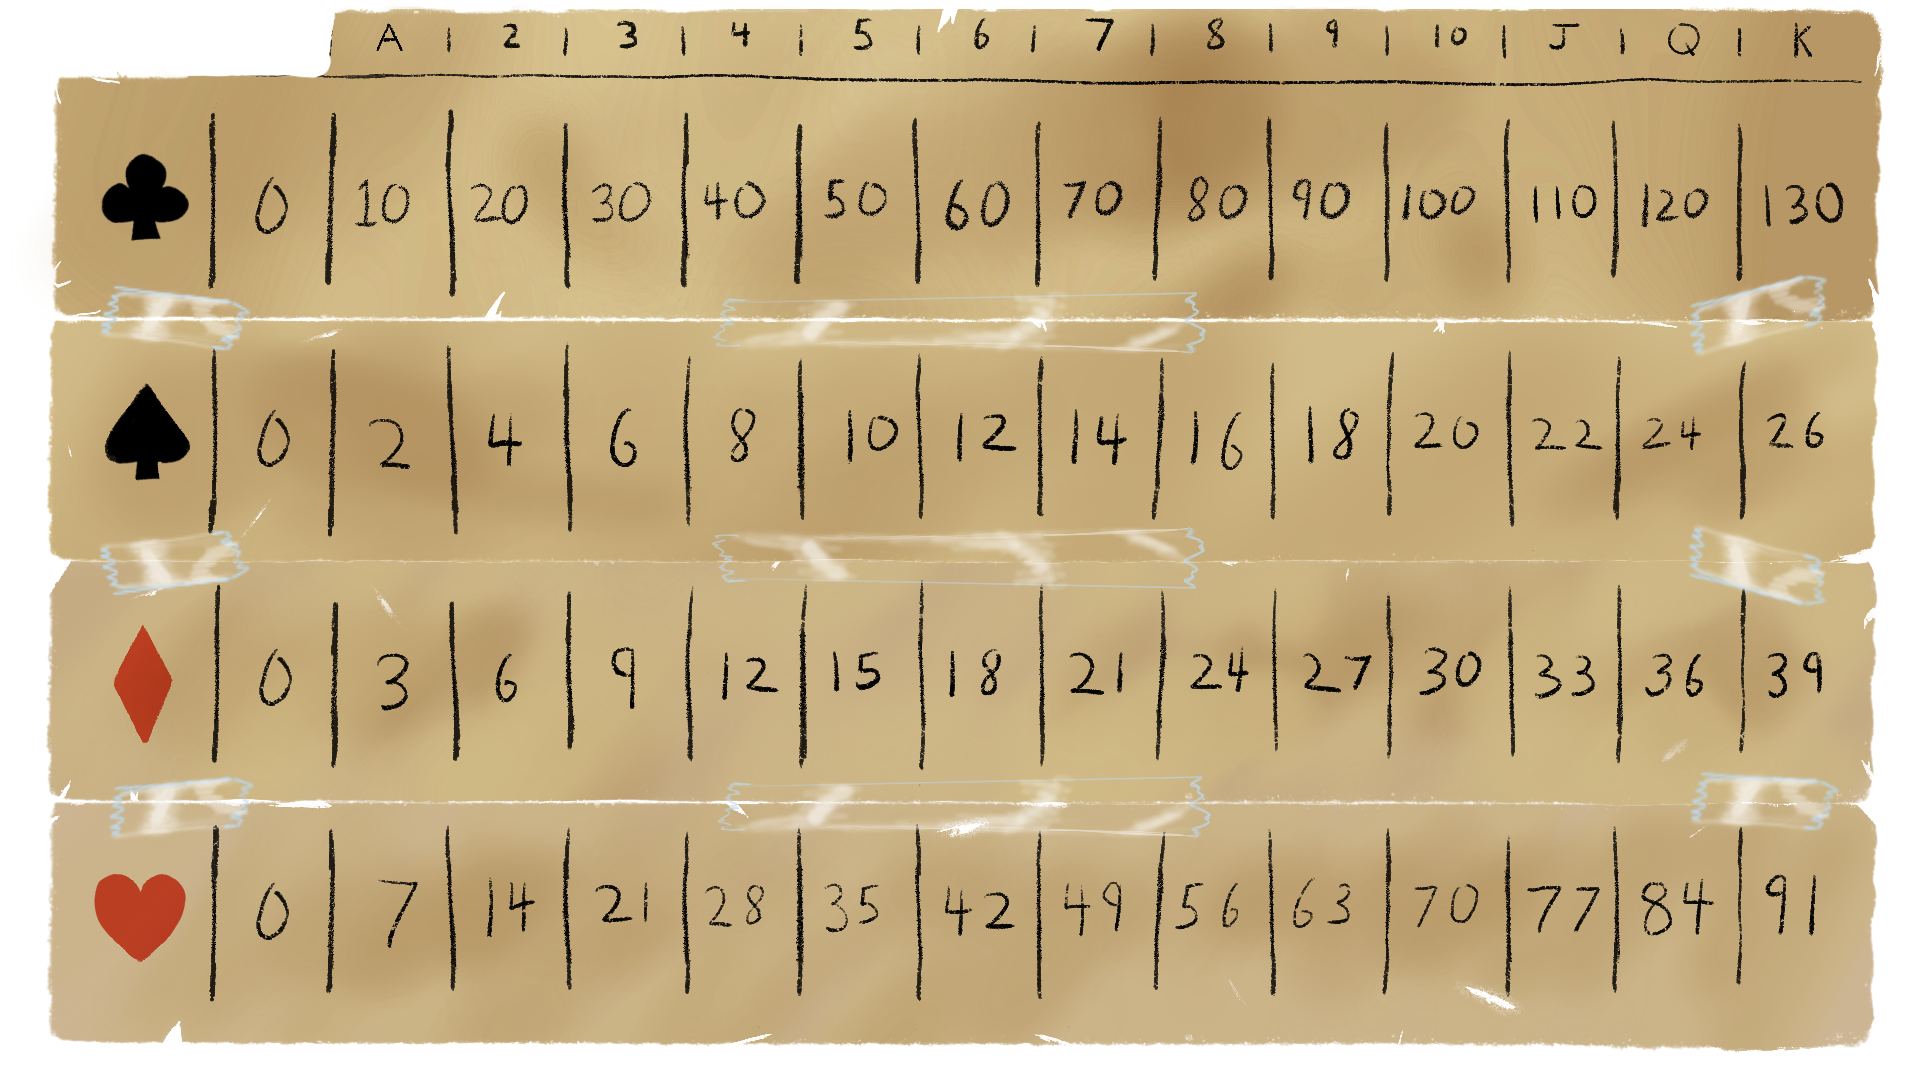 A | 2 | 3 | 4 | 5 | 6 | 7 | 8 | 9 | 10 | J | Q | K
♣ | 0 | 10 | 20 | 30 | 40 | 50 | 60 | 70 | 80 | 90 | 100 | 110 | 120 | 130
♠ | 0 | 2 | 4 | 6 | 8 | 10 | 12 | 14 | 16 | 18 | 20 | 22 | 24 | 26
♦ | 0 | 3 | 6 | 9 | 12 | 15 | 18 | 21 | 24 | 27 | 30 | 33 | 36 | 39
♥ | 0 | 7 | 14 | 21 | 28 | 35 | 42 | 49 | 56 | 63 | 70 | 77 | 84 | 91